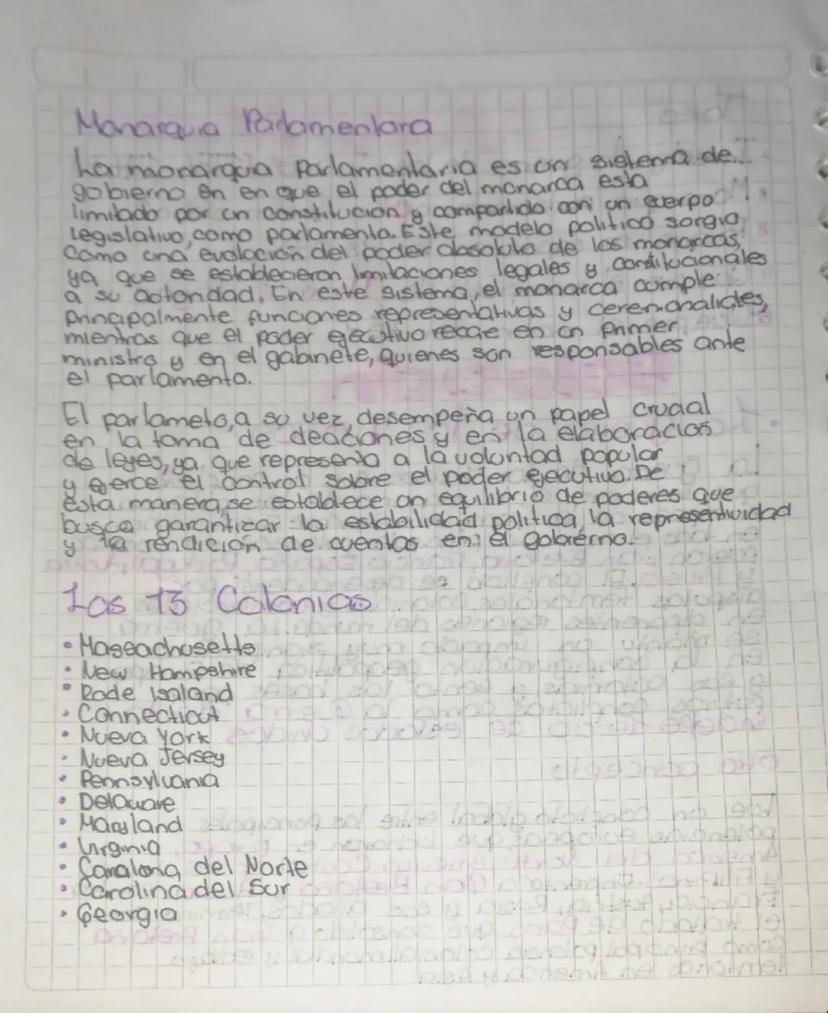 Monarquia Parlamentara
La monarquia parlamentaria es un sistema de
gobierno en en que el poder del monarca esta
limitado por un constitucion y compartido con un cuerpo
legislativo, como parlamento. Este modelo politico sorgio
como una evolución del poder absoluto de los monarcas,
ya que se establecieron limitaciones legales y constitucionales
a su autoridad. En este sistema, el monarca cumple
principalmente funciones representativas y ceremonialides,
mientras que el poder ejecutivo recae en un primer
ministro y en el gabinete, quienes son responsables ante
el parlamento.
El parlameto, a su vez, desempeña un papel crucial
en la toma de deaciones y en la elaboracion
de leyes, ya que representa a la voluntad popular
y ejerce el control sobre el poder ejecutivo. De
esta manera, se establece un equilibrio de poderes que
busca garantizar la estabilidad politica, la representividad
y la rendición de cuentas en el gobierno.
Las 13 Colonias
• Maseachusetts
• New Hampshire
• Rode Isaland
• Connecticut
• Nueva York
• Nueva Jersey
• Pennsylvania
• Delaware
• Maryland
• Virginia
• Caralona del Norte
• Carolina del Sur
• Georgia